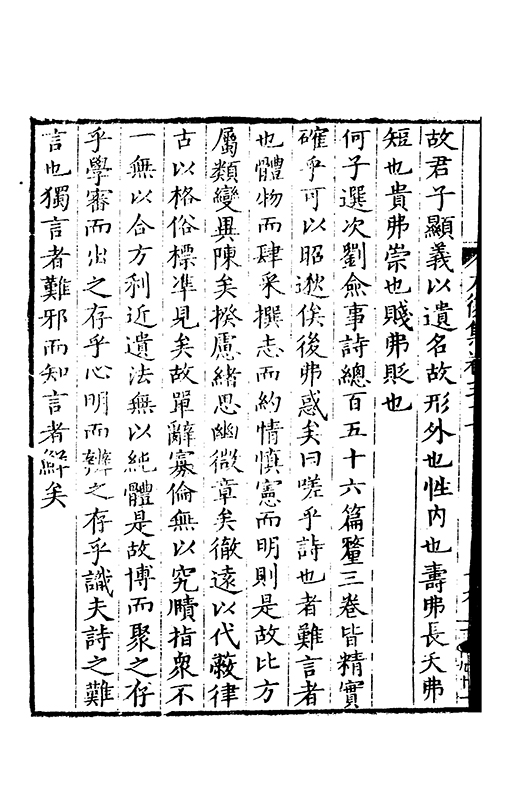 故君子顯義以遺名故形外也性內也壽弗長夭弗
短也貴弗崇也賤弗貶也
何子選次劉僉事詩總百五十六篇釐三卷皆精實
確乎可以昭逖俟後弗惑矣曰嗟乎詩也者難言者
也體物而肆采撰志而約情慎憲而明則是故比方
屬類變異陳矣揆慮緒思幽微章矣徹遠以代蔽律
古以格俗標準見矣故單辭寡倫無以究賾指衆不
一無以合方利近遺法無以純體是故博而聚之存
乎學審而出之存乎心明而辨之存乎識夫詩之難
言也獨言者難邪而知言者鮮矣